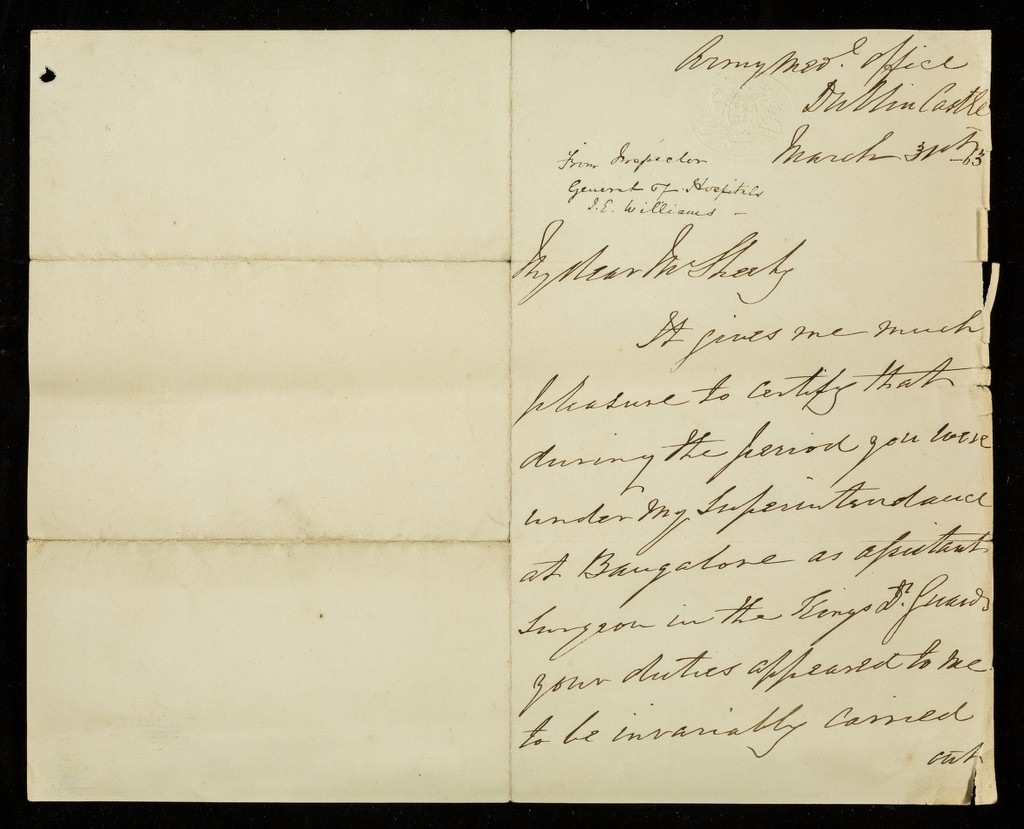 Army Med.l Office
Dublin Castle
March 31st /63
From Inspector
General of Hospitals
J.E. Williams –
My dear Mr Sheehy
It gives me much
pleasure to certify that
during the period you were
under my superintendance
at Bangalore as assistant
surgeon in the Kings Dr. Guards
your duties appeared to me
to be invariably carried
out